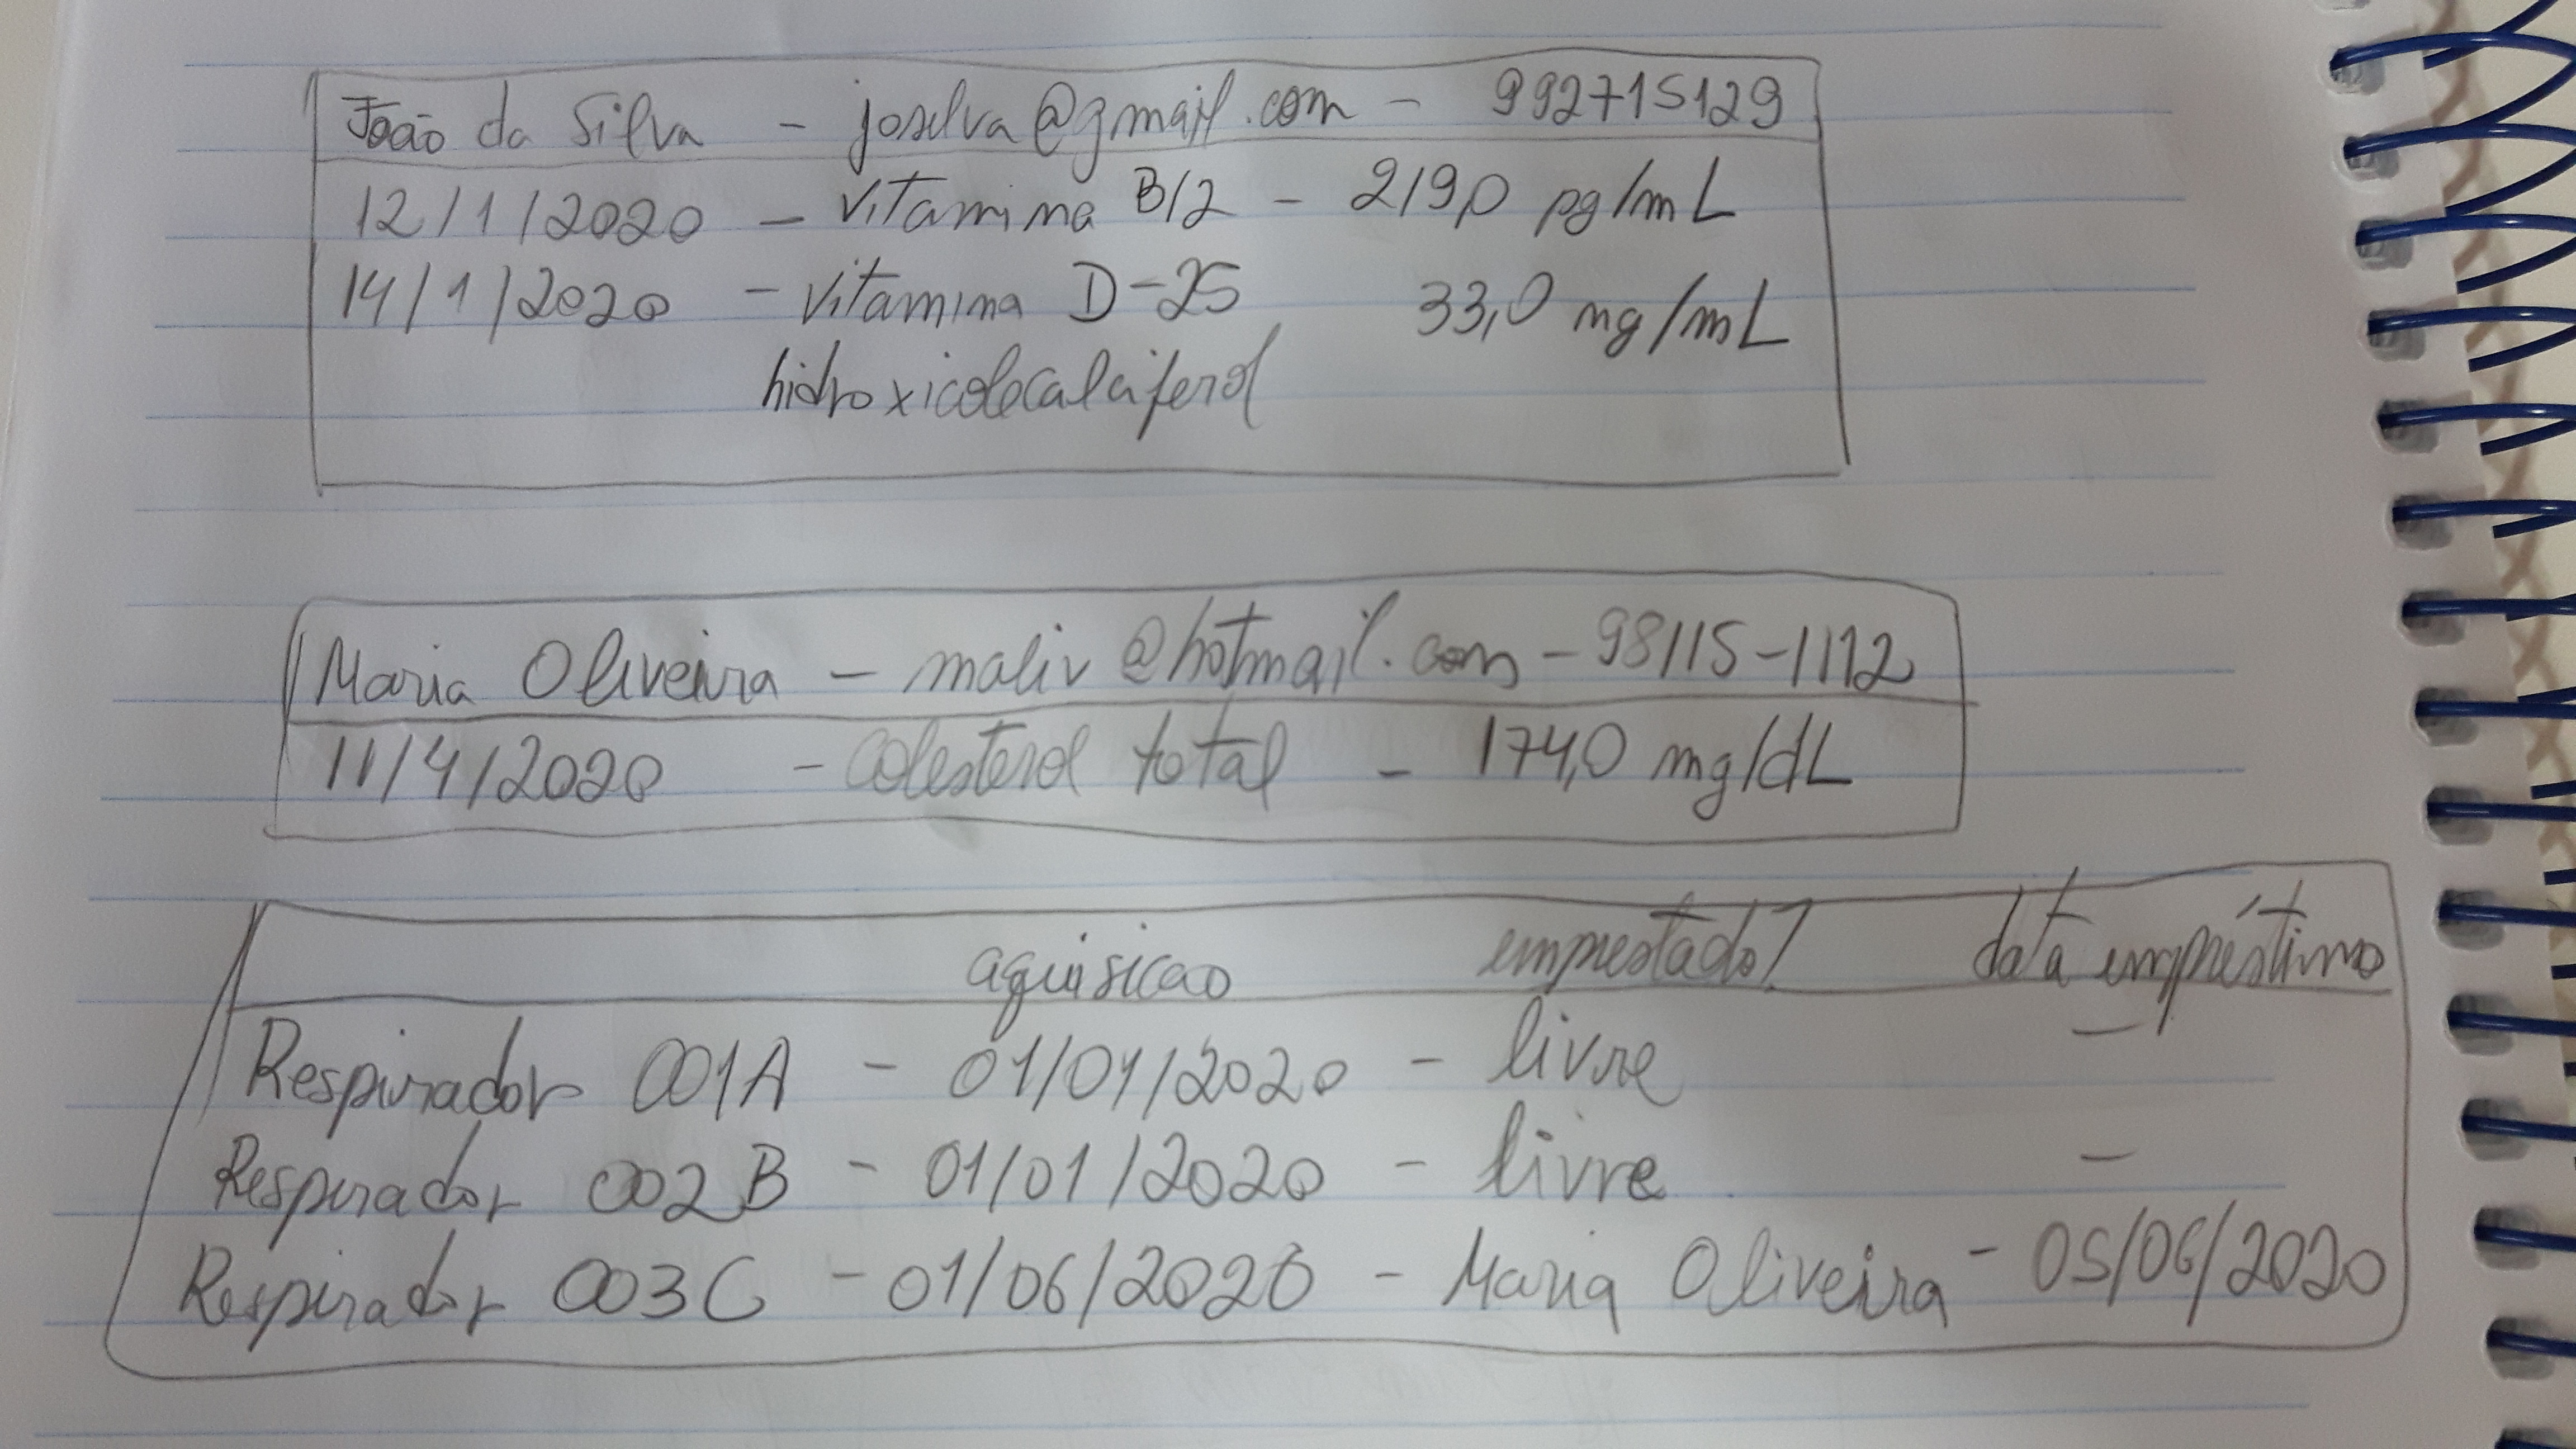 João da Silva - joselva@gmail.com - 992715129
12/1/2020 - Vitamina B12 - 219,0 pg/mL
14/1/2020 - Vitamina D-25 33,0 mg/mL
hidroxicolecalciferol
Maria Oliveira - maliv@hotmail.com - 98115-1112
11/4/2020 - Colesterol total - 174,0 mg/dL
aquisicao emprestado? data empréstimo
Respirador 001A - 01/01/2020 - livre -
Respirador 002B - 01/01/2020 - livre -
Respirador 003C - 01/06/2020 - Maria Oliveira - 05/06/2020